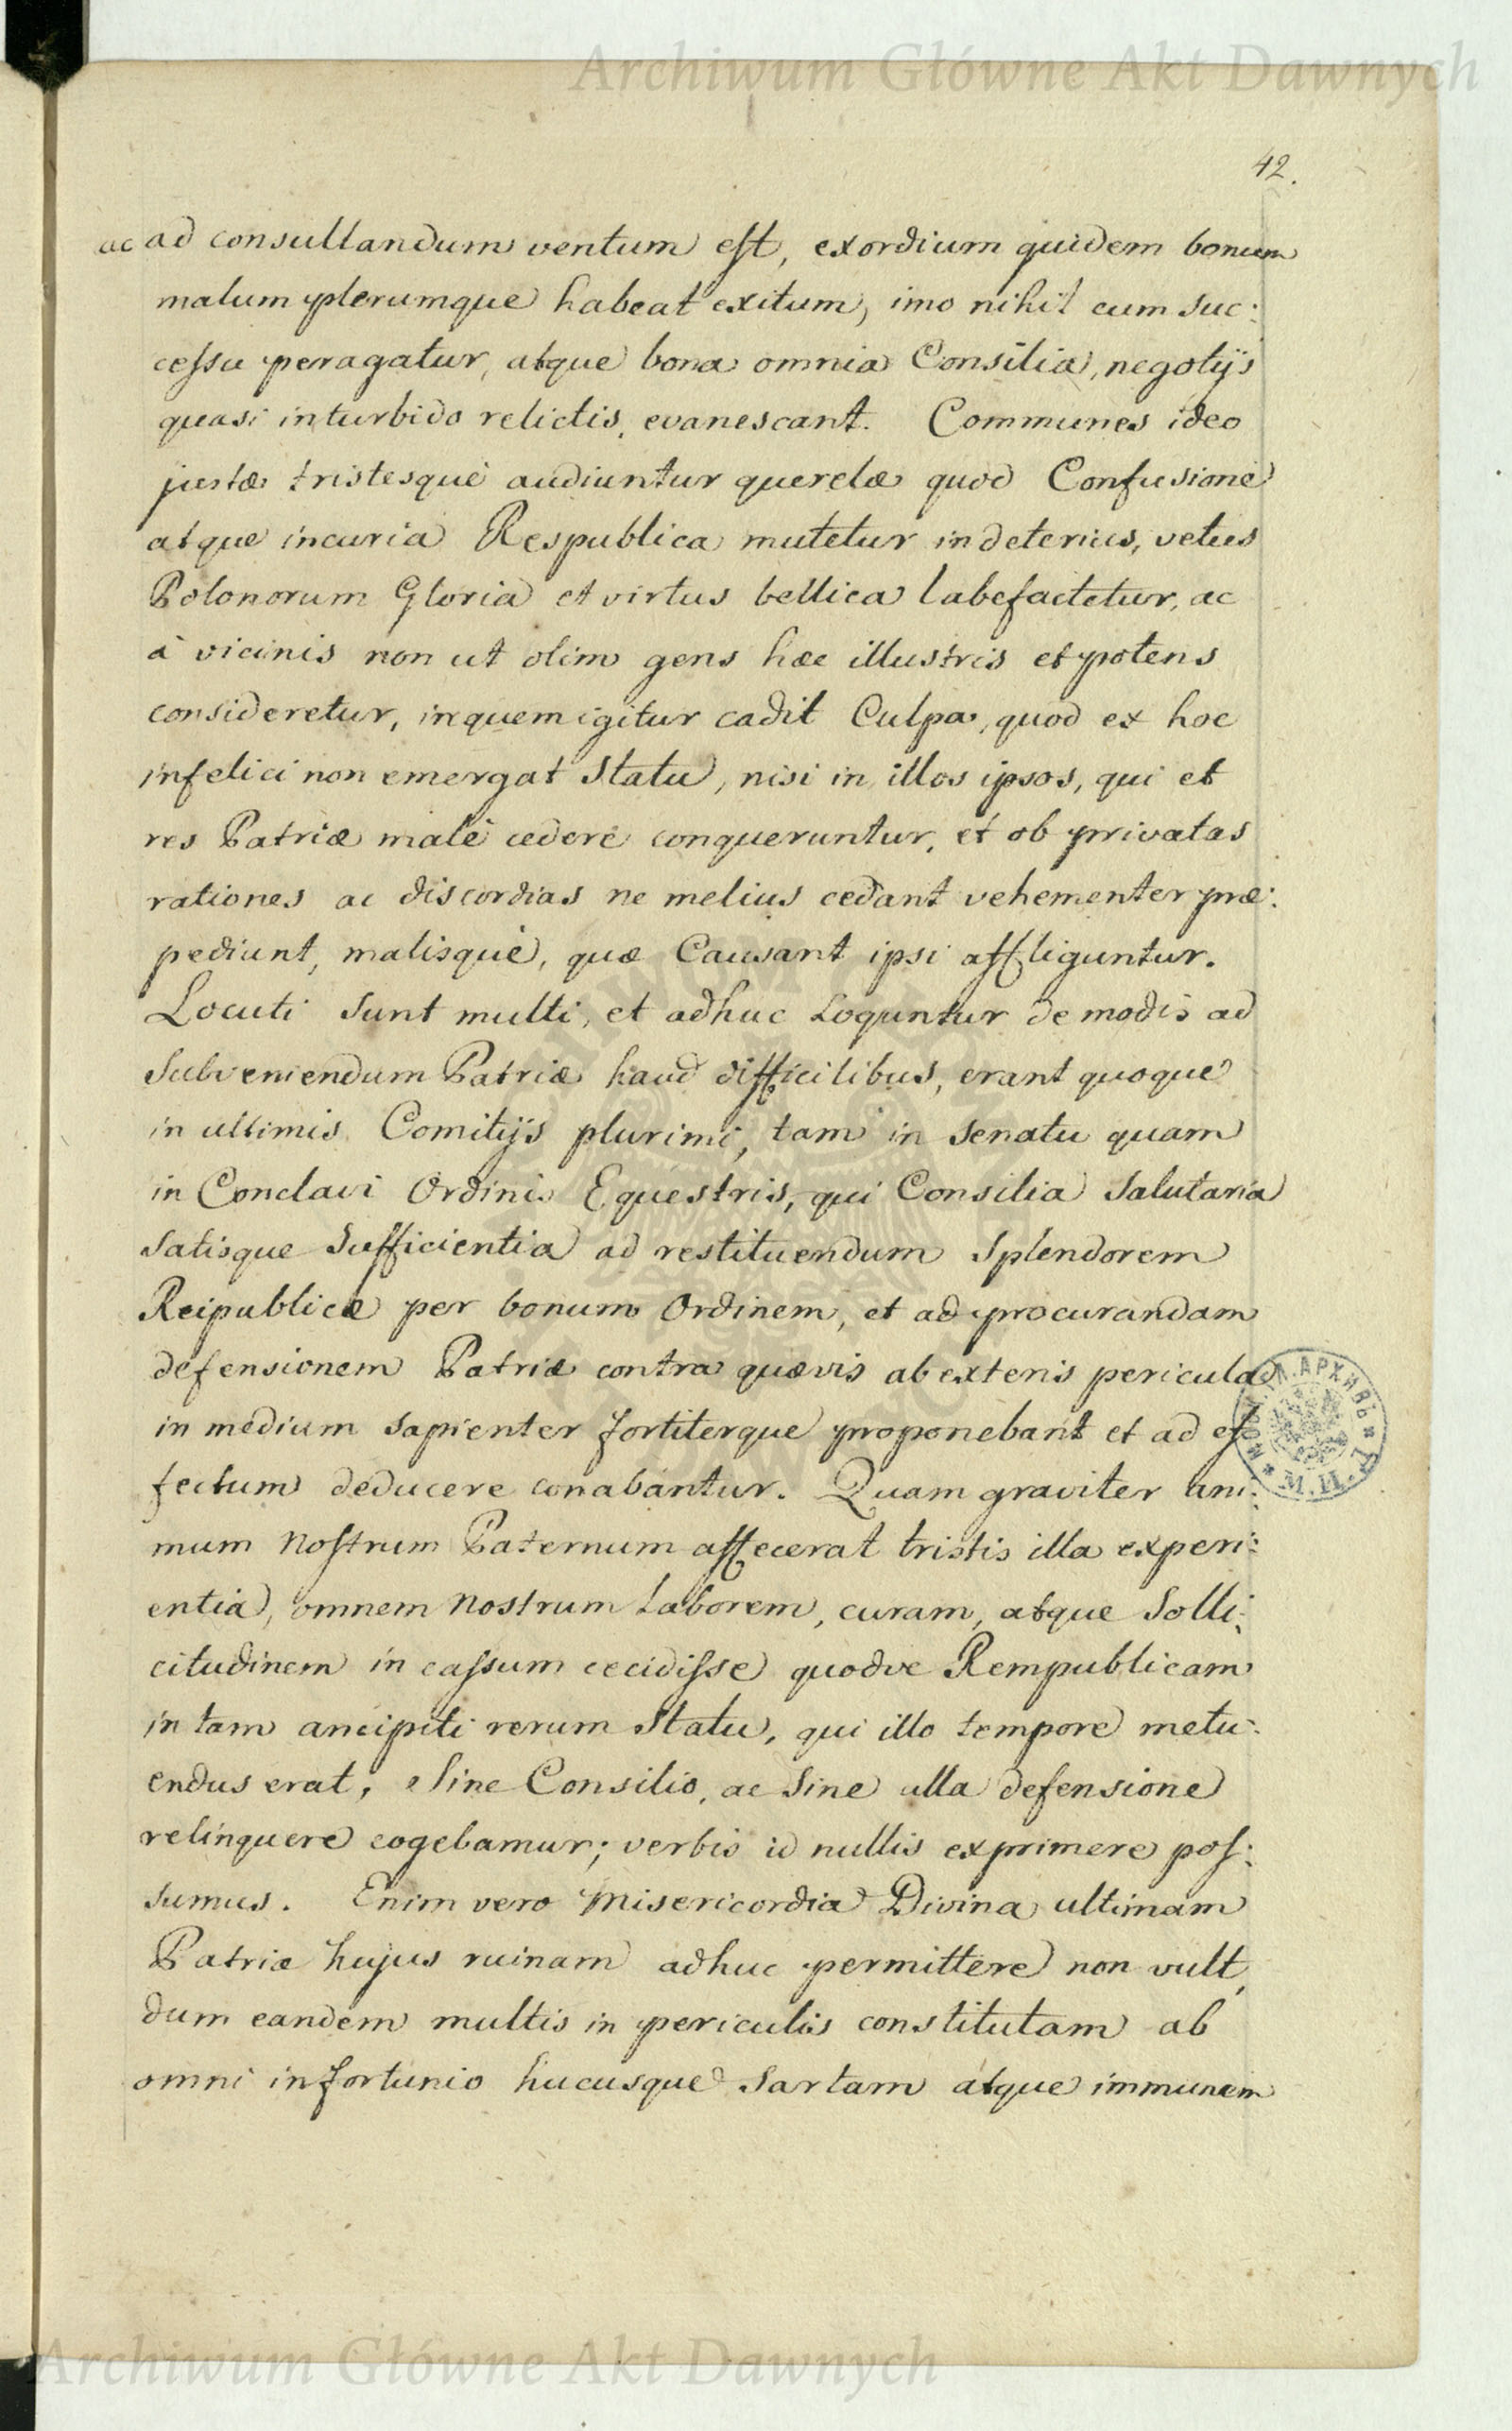 Archiwum Główne Akt Dawnych
42.
ac ad consultandum ventum est, exordium quidem bonum
malum plerumque habeat exitum, imo nihil cum suc:
cessu peragatur, atque bona omnia Consilia, negotijs
quasi in turbido relictis, evanescant. Communes ideo
justæ tristesque audiuntur querelæ quod Confusione
atque incuria Respublica mutetur in deterius, vetus
Polonorum Gloria et virtus bellica labefactetur, ac
à vicinis non ut olim gens hæc illustris et potens
consideretur, in quem igitur cadit Culpa, quod ex hoc
infelici non emergat Statu, nisi in illos ipsos, qui et
res Patriæ malè cedere conqueruntur, et ob privatas
rationes ac discordias ne melius cedant vehementer præ:
pediunt, malisque, quæ Causant ipsi affliguntur.
Locuti Sunt multi, et adhuc Loquntur de modis ad
Subveniendum Patriæ haud difficilibus, erant quoque
in ultimis Comitijs plurimi, tam in Senatu quam
in Conclavi Ordinis Equestris, qui Consilia Salutaria
Satisque Sufficientia ad restituendum Splendorem
Reipublicæ per bonum Ordinem, et ad procurandam
defensionem Patriæ contra quævis ab exteris pericula
in medium sapienter fortiterque proponebant et ad ef
fectum deducere conabantur. Quam graviter ani:
mum Nostrum Paternum affecerat tristis illa experi:
entia, omnem Nostrum Laborem, curam, atque Solli:
citudinem in cassum cecidisse quodve Rempublicam
in tam ancipiti rerum Statu, qui illo tempore metu:
endus erat, Sine Consilio, ac Sine ulla defensione
relinquere cogebamur; verbis id nullis exprimere pos:
sumus. Enim vero Misericordia Divina ultimam
Patriæ hujus ruinam adhuc permittere non vult,
dum eandem multis in periculis constitutam ab
omni infortunio hucusque Sartam atque immunem
Archiwum Główne Akt Dawnych